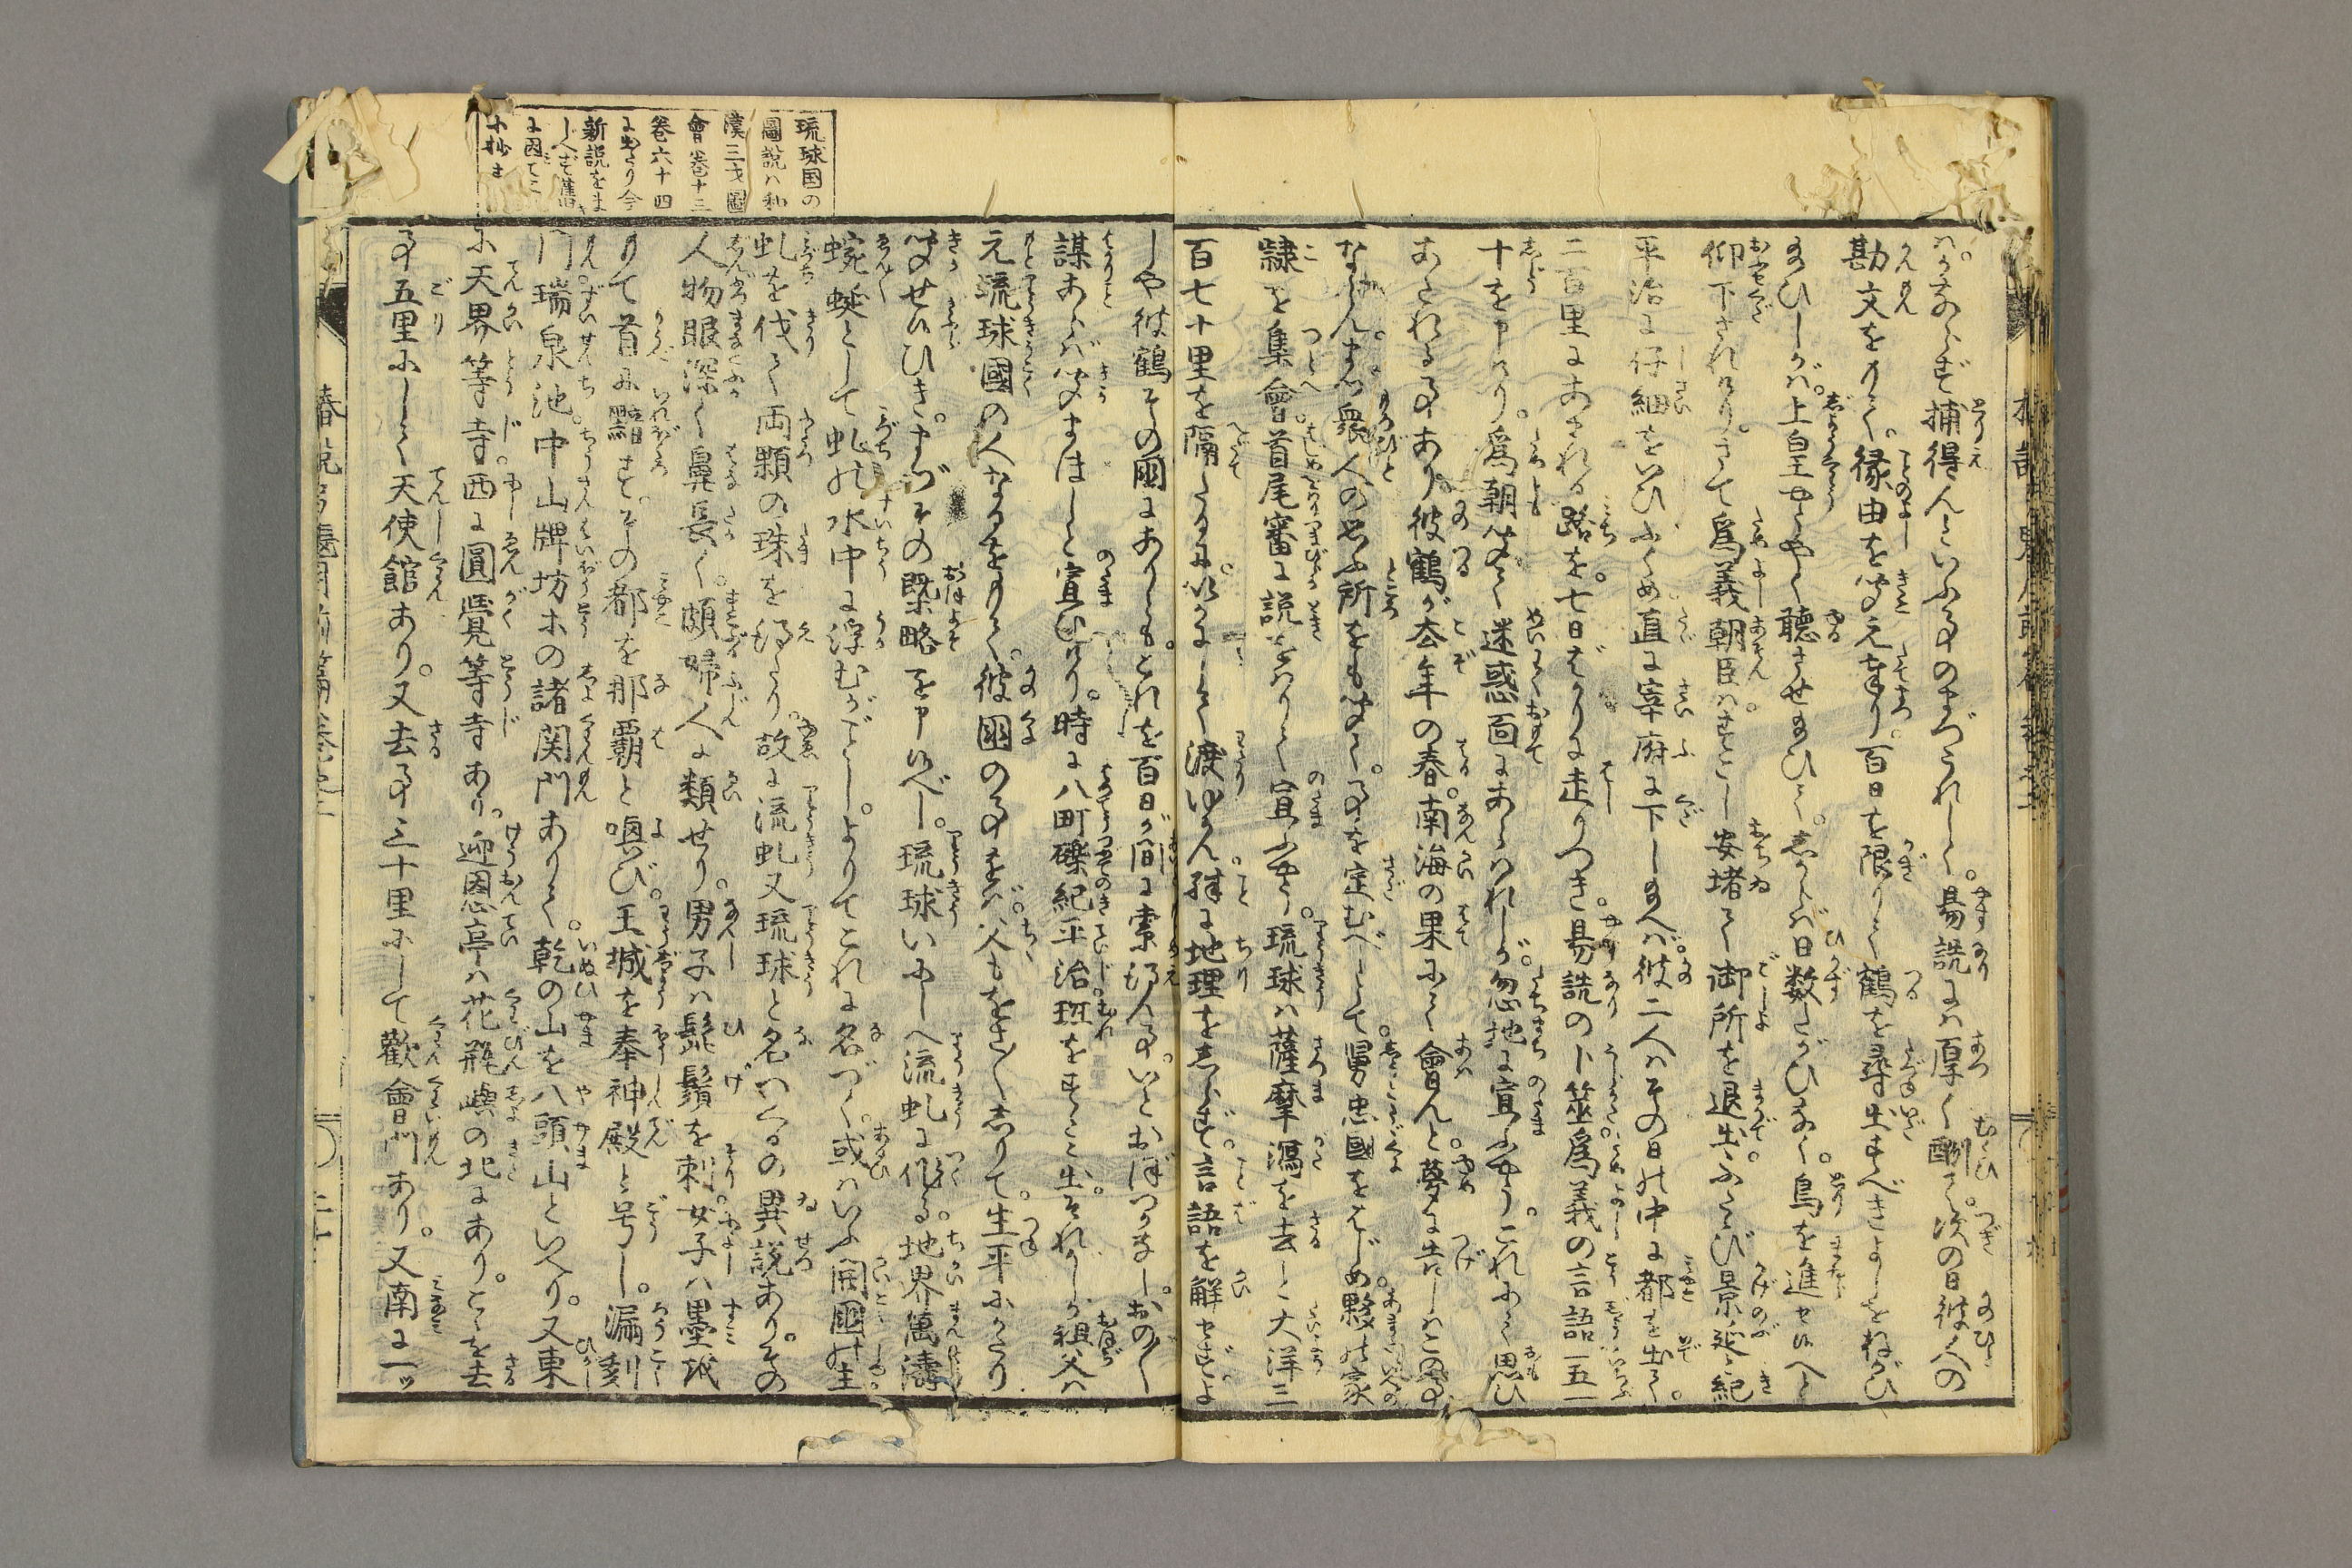 ハかならず捕得んといふ事のまづうれしく。易説には厚く酬て。次の日彼人の
勘文をりて。縁由を聞えまゐり。百日を限りて鶴を尋出すべきよしをねがひ
給ひしかば。上皇やがて聴させ給ひて。しからば日数たがひなく。鳥を進せ候へと
仰下されけり。さて為義朝臣ハ。すこし安堵て御所を退出。ふたゝび景延紀
平治に仔細をいひふくめ直に宰府に下し給へば。彼二人ハその日の中に都を出て。
二百里にあまれる路を。七日ばかりに走りつき。易説の卜筮為義の言語一五一
十を申けり。為朝聞て迷惑面にあらハれしが。忽地に宣ふやう。これにて思ひ
あはせる事あり。彼鶴が去年の春。南海の果にて會んと。夢に告しはこの事
ならん。まづ衆人の思ふ所をも聞て。事を定むべしとて。舅忠國をはじめ。夥の家
隷を集會。首尾審に説をハりて宣ふやう。琉球ハ薩摩瀉を去こと大洋三
百七十里を隔たるに。いかにして渡ゆかん。殊に地理をしらず。言語を解せざよ
しや彼鶴その國にありとも。これを百日が間に索得ん事。いとおぼつかなし。おの〳〵
謀あらば聞まほしと宣ひけり。時に八町礫紀平治班をすゝみ出。それがしが祖父ハ
元流球國の人なるをりて。彼國の事をば。父もをさ〳〵しりて。生平にかたり
聞せ候ひき。まづその概略を申候べし。琉球いにしへ流虬に作る。地界萬濤
蜿蜒として虬の水中に浮むがごとし。よりてこれに名づく。或ハいふ開國の主
虬を伐て両顆の珠を得たり。故に流虬又琉球と名つくるの異説あり。その
人物眼深く鼻長く。頗婦人に類せり。男子ハ髭鬚を剃。女子ハ墨をも
りて首に黥す。その都を那覇と喚び。王城を奉神殿と号し。漏刻
門瑞泉池。中山牌坊等の諸関門ありて。乾の山を八頭山といへり。又東
に天界等寺。西に圓覺等寺あり。迎恩亭ハ花瓶嶼の北にあり。こゝを去
事五里にして天使館あり。又去事三十里にして歡會門あり。又南に一ッ
琉球国の
圖説ハ和
漢三才圖
會巻十三
巻六十四
に出たり今
新説をま
じへず舊
に因てこゝ
に抄す